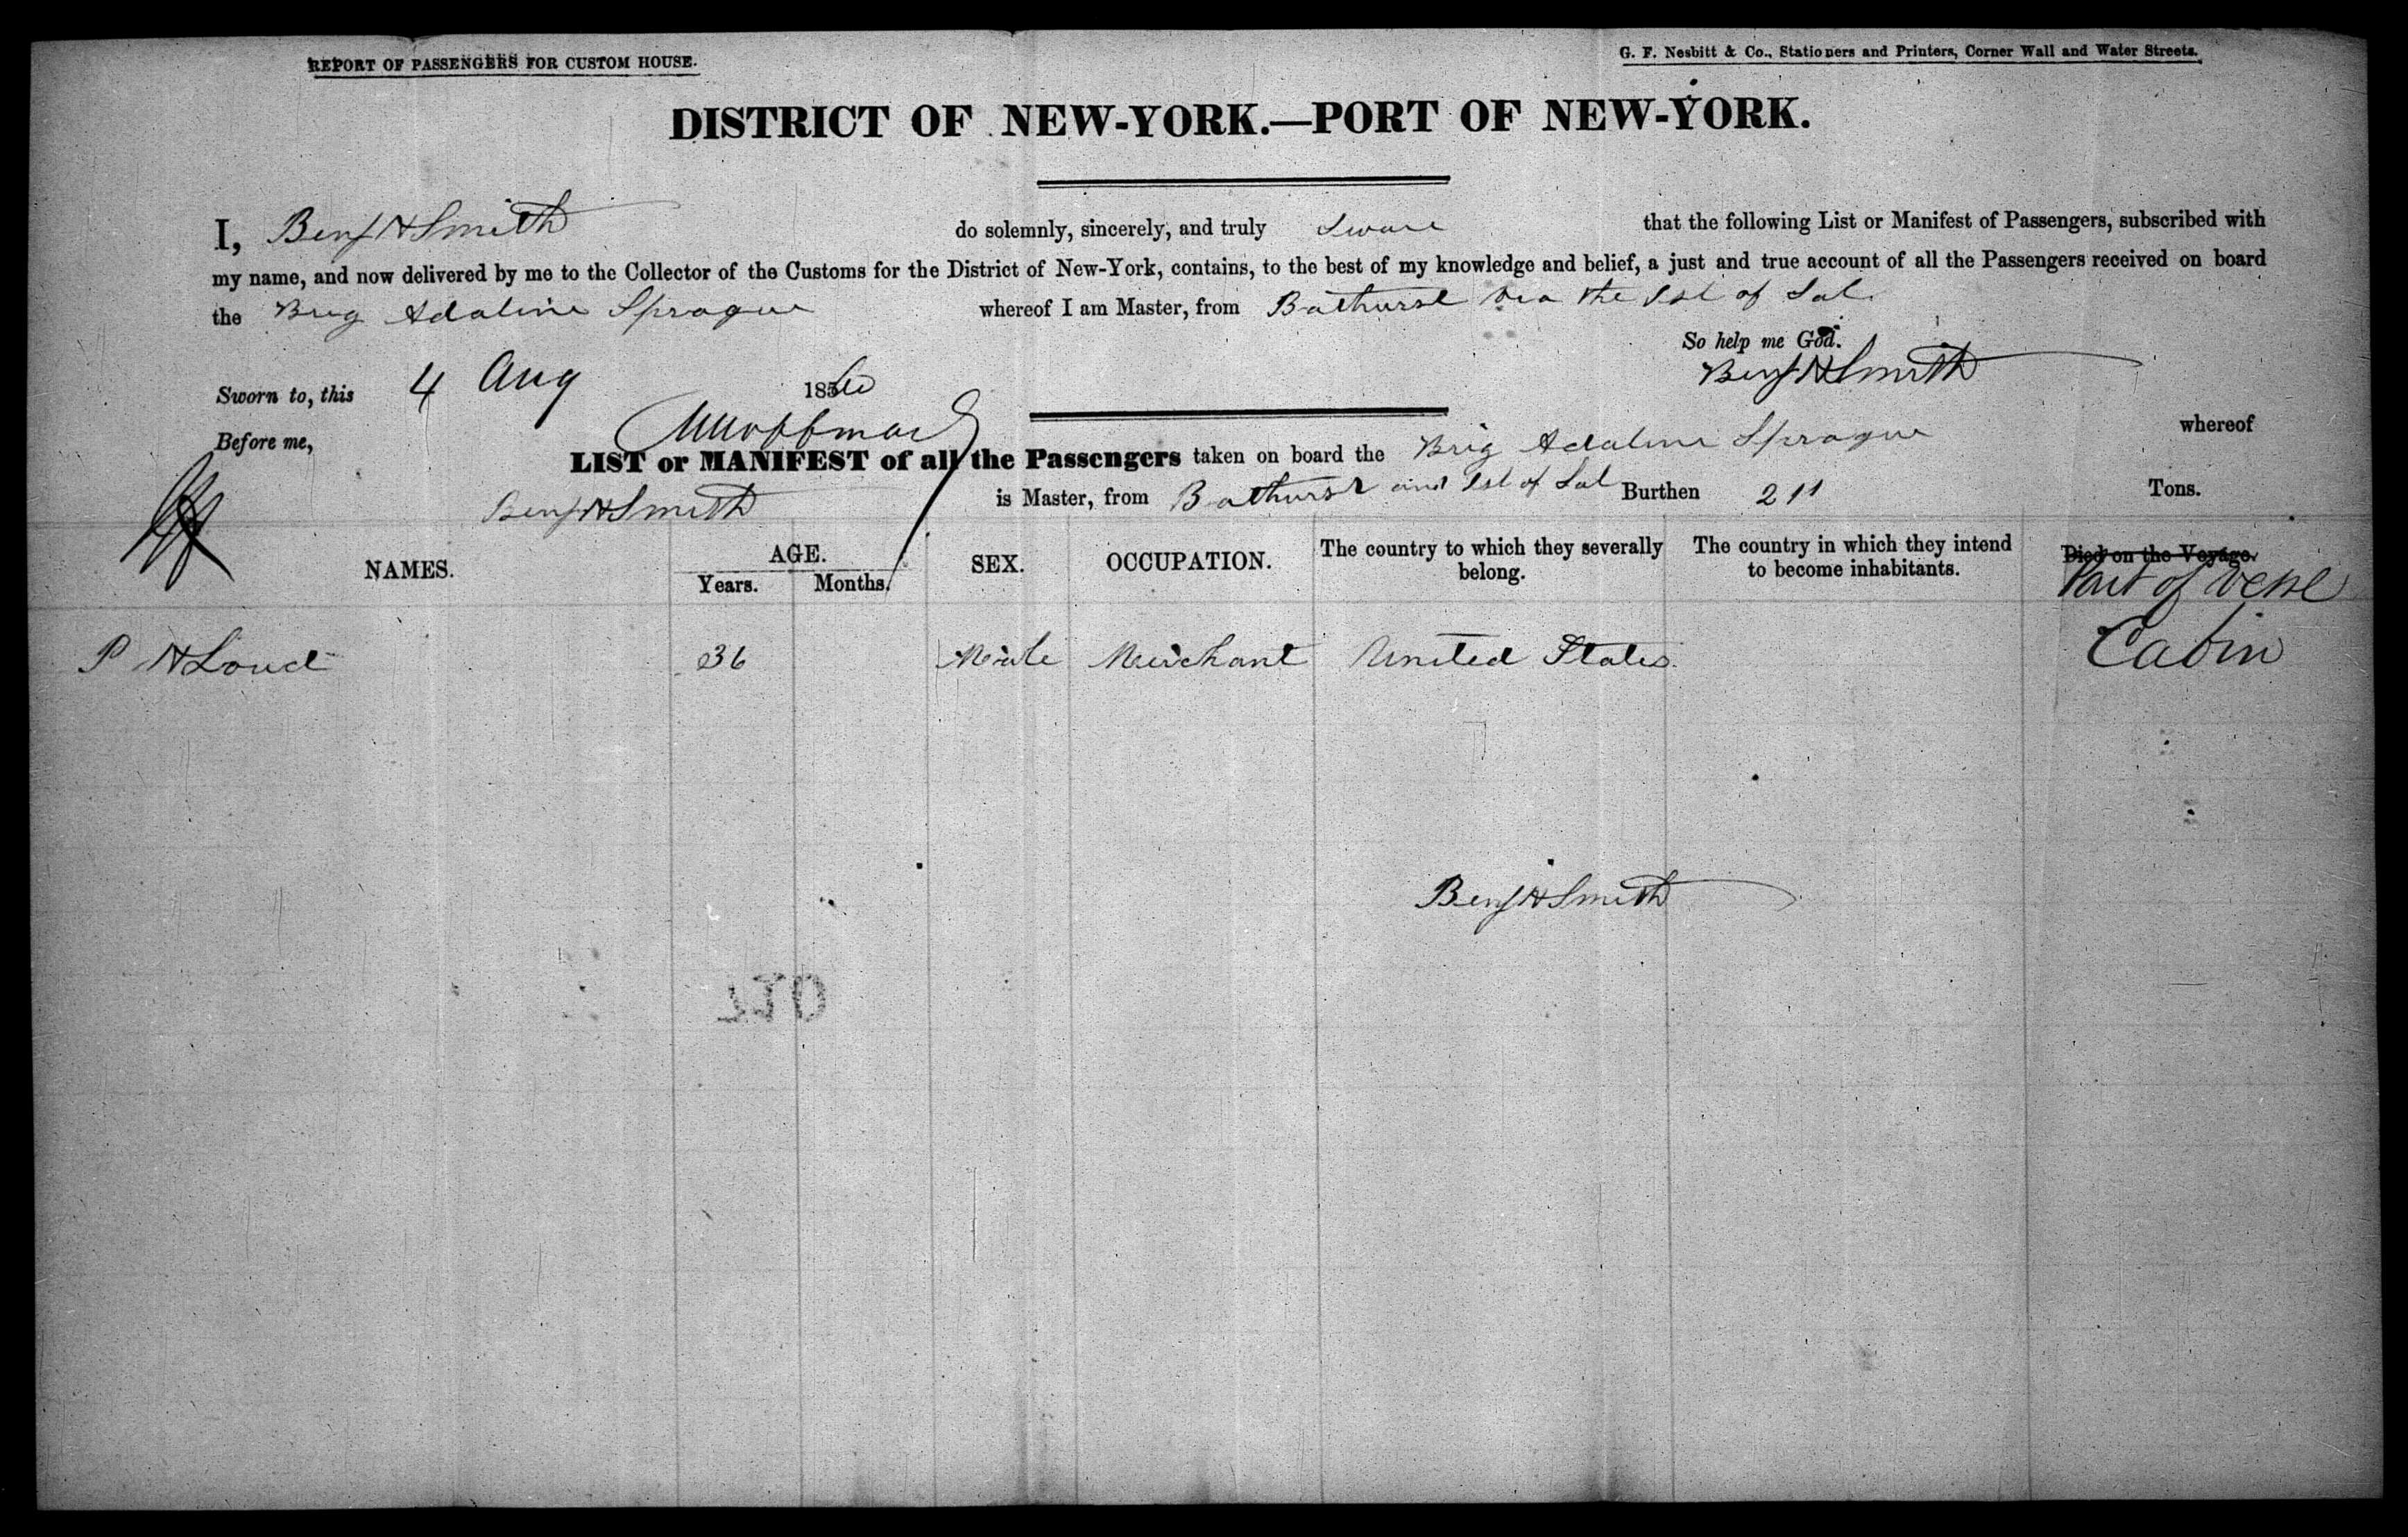 REPORT OF PASSENGERS FOR CUSTOM HOUSE.
G. F. Nesbitt & Co., Stationers and Printers, Corner Wall and Water Streets.
DISTRICT OF NEW-YORK.—PORT OF NEW-YORK.
I, Benj H Smith do solemnly, sincerely, and truly Sware that the following List or Manifest of Passengers, subscribed with
my name, and now delivered by me to the Collector of the Customs for the District of New-York, contains, to the best of my knowledge and belief, a just and true account of all the Passengers received on board
the Brig Adaline Sprague whereof I am Master, from Bathurst via the Isl of Sal
So help me God.
Sworn to, this 4 Aug 1856
Benj H Smith
Before me,
LIST or MANIFEST of all the Passengers taken on board the Brig Adaline Sprague whereof
Benj H Smith is Master, from Bathurst and Isl of Sal Burthen 211 Tons.
NAMES. AGE. Years. Months. SEX. OCCUPATION. The country to which they severally belong. The country in which they intend to become inhabitants. Died on the Voyage.
Part of Vessel
P H Loud 36 Male Merchant United States Cabin
Benj H Smith